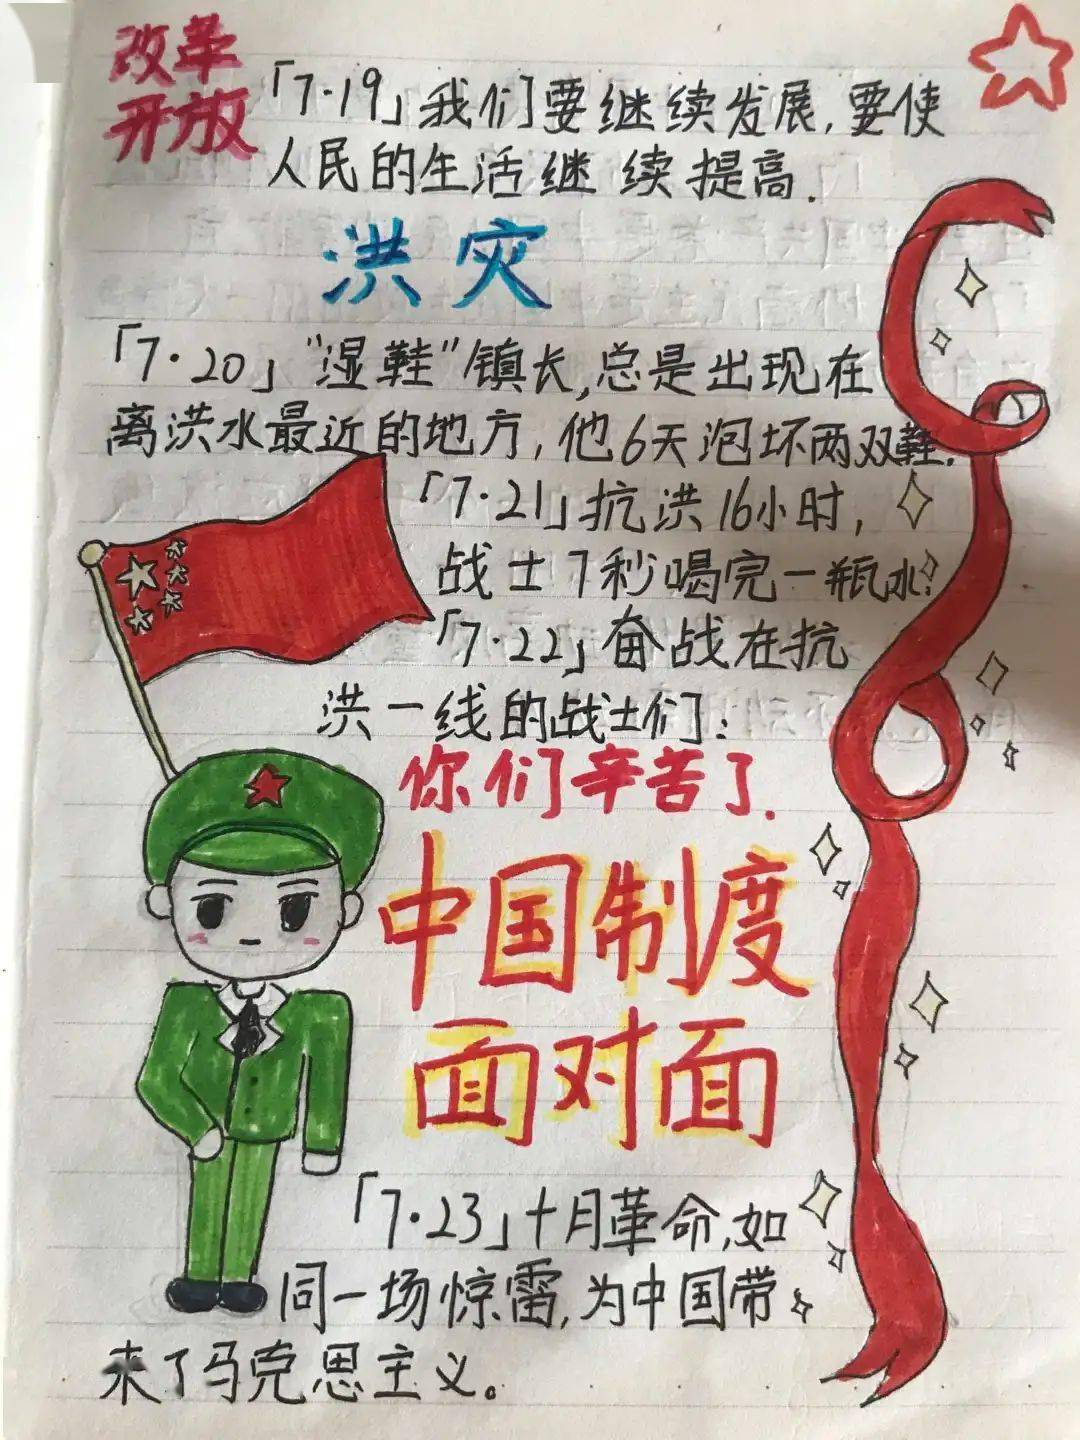 改革
开放
「7·19」我们要继续发展,要使
人民的生活继续提高.
洪灾
「7·20」"湿鞋"镇长,总是出现在
离洪水最近的地方,他6天泡坏两双鞋.
「7·21」抗洪16小时,
战士7秒喝完一瓶水?
「7·22」奋战在抗
洪一线的战士们:
你们辛苦了.
中国制度
面对面
「7·23」十月革命,如
同一场惊雷,为中国带
来了马克思主义。